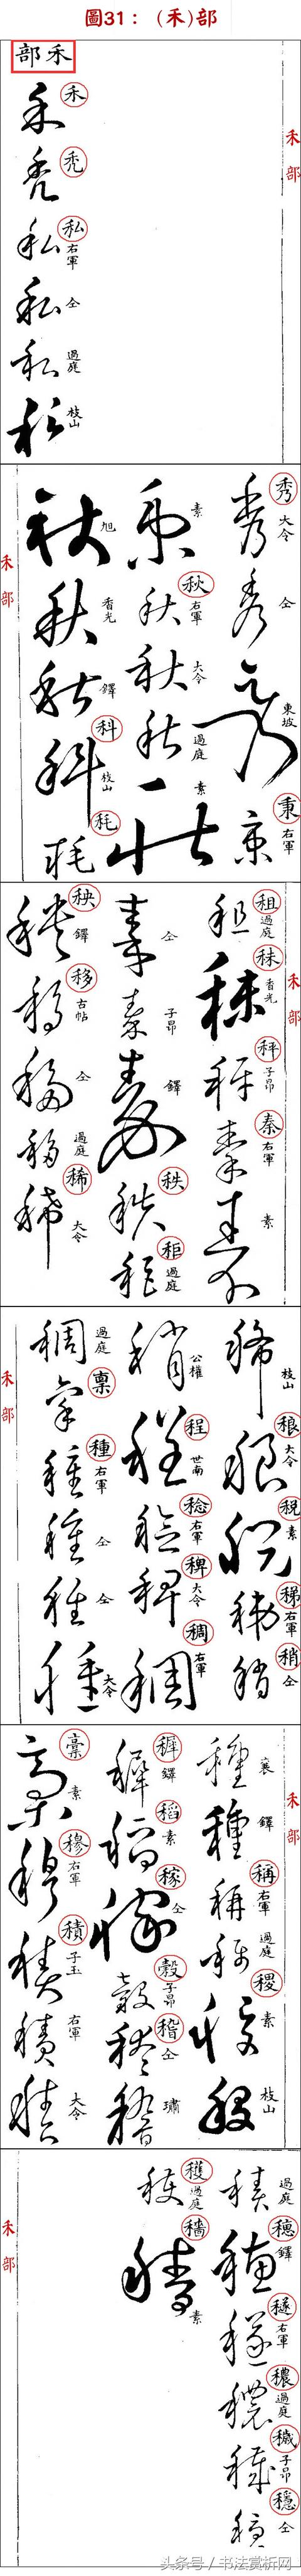 圖31：（禾）部
禾部
禾部
禾
禿
私 右軍
仝
過庭
枝山
禾部
秀 大令
仝
東坡
秉 右軍
素
秋 右軍
大令
過庭
素
旭
香光
鐸
科 枝山
秏
禾部
租 過庭
秣 香光
秤 子昂
秦 右軍
素
仝
子昂
鐸
秩
秬 過庭
秧 鐸
移 古帖
仝
過庭
稀 大令
禾部
枝山
稂 大令
稅 素
稊 右軍
稍 仝
公權
程 世南
稔 右軍
稗 大令
稠 右軍
過庭
稟
種 右軍
仝
仝
大令
禾部
襄
鐸
稱 右軍
過庭
稷 素
枝山
稺 鐸
稻 素
稼 仝
穀 子昂
稽 仝
璛
稾 素
穆 右軍
積 子玉
右軍
大令
禾部
過庭
穗 鐸
穟 右軍
穠 過庭
穢 子昂
穩 仝
穫 過庭
穡 素
头条号／书法赏析网